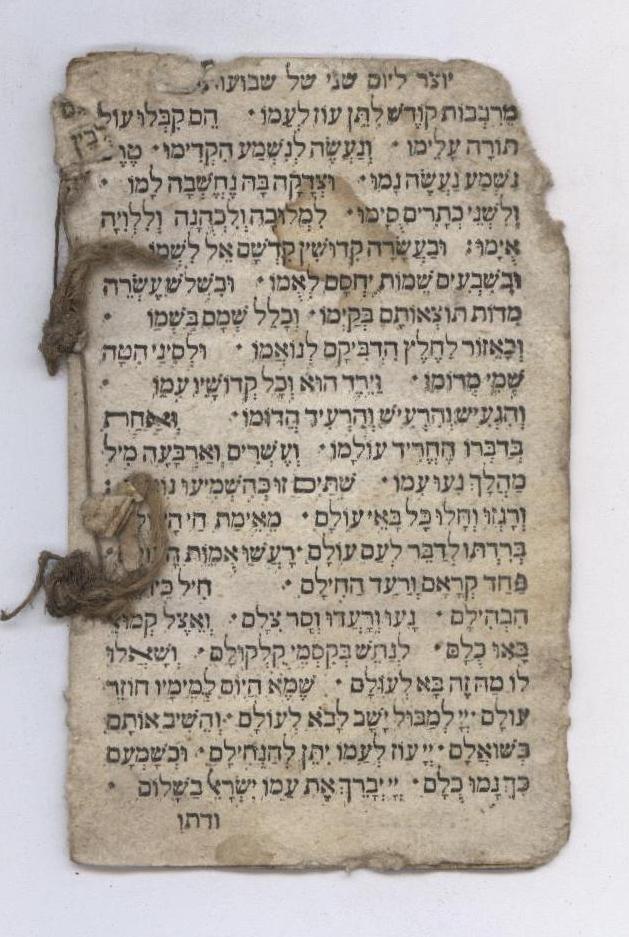 יוצר ליום שני של שבועות
מרכבות קודש לתן עוז לעמו · הם קבלו עול
תורה עלימו · ונעשה לנשמע הקדימו ·
נשמע נעשה נמו · וצדקה בה נחשבה למו ·
ולשני כתרים סימו · למלוכה ולכהנה וללויה
אימו : ובעשרה קדושין קדשם אל לשמו
ובשבעים שמות יחסם לאמו · ובשלש עשרה
מדות תוצאותם בקימו · וכלל שמם בשמו ·
וכאזור לחלץ הדביקם לנואמו · ולסיני הטה
שמי מרומו · וירד הוא וכל קדושיו עמו ·
והגעיש והרעיש והרעיד הדומו · ואחרת
בדברו החריד עולמו · ועשרים וארבעה מיל
מהלך נעו עמו · שתים זו בהשמיעו
ורגזו וחלו כל באי עולם · מאימת חי
ברדתו לדבר לעם עולם · רעשו אמות
פחד קראם ורעד החילם · חיל
הבהילם · נעו ורעדו וסר צלם · ואצל
באו כלם · לנחש בקסמי קלקולם · ושאלו
לו מה זה בא לעולם · שמא היום למימיו חוזר
עולם · יי למבול ישב לבא לעולם · והשיב אותם
בשואלם · יי עוז לעמו יתן להנחילם · וכשמעם
כך נמו כלם · יי יברך את עמו ישראל בשלום ·
ודתו